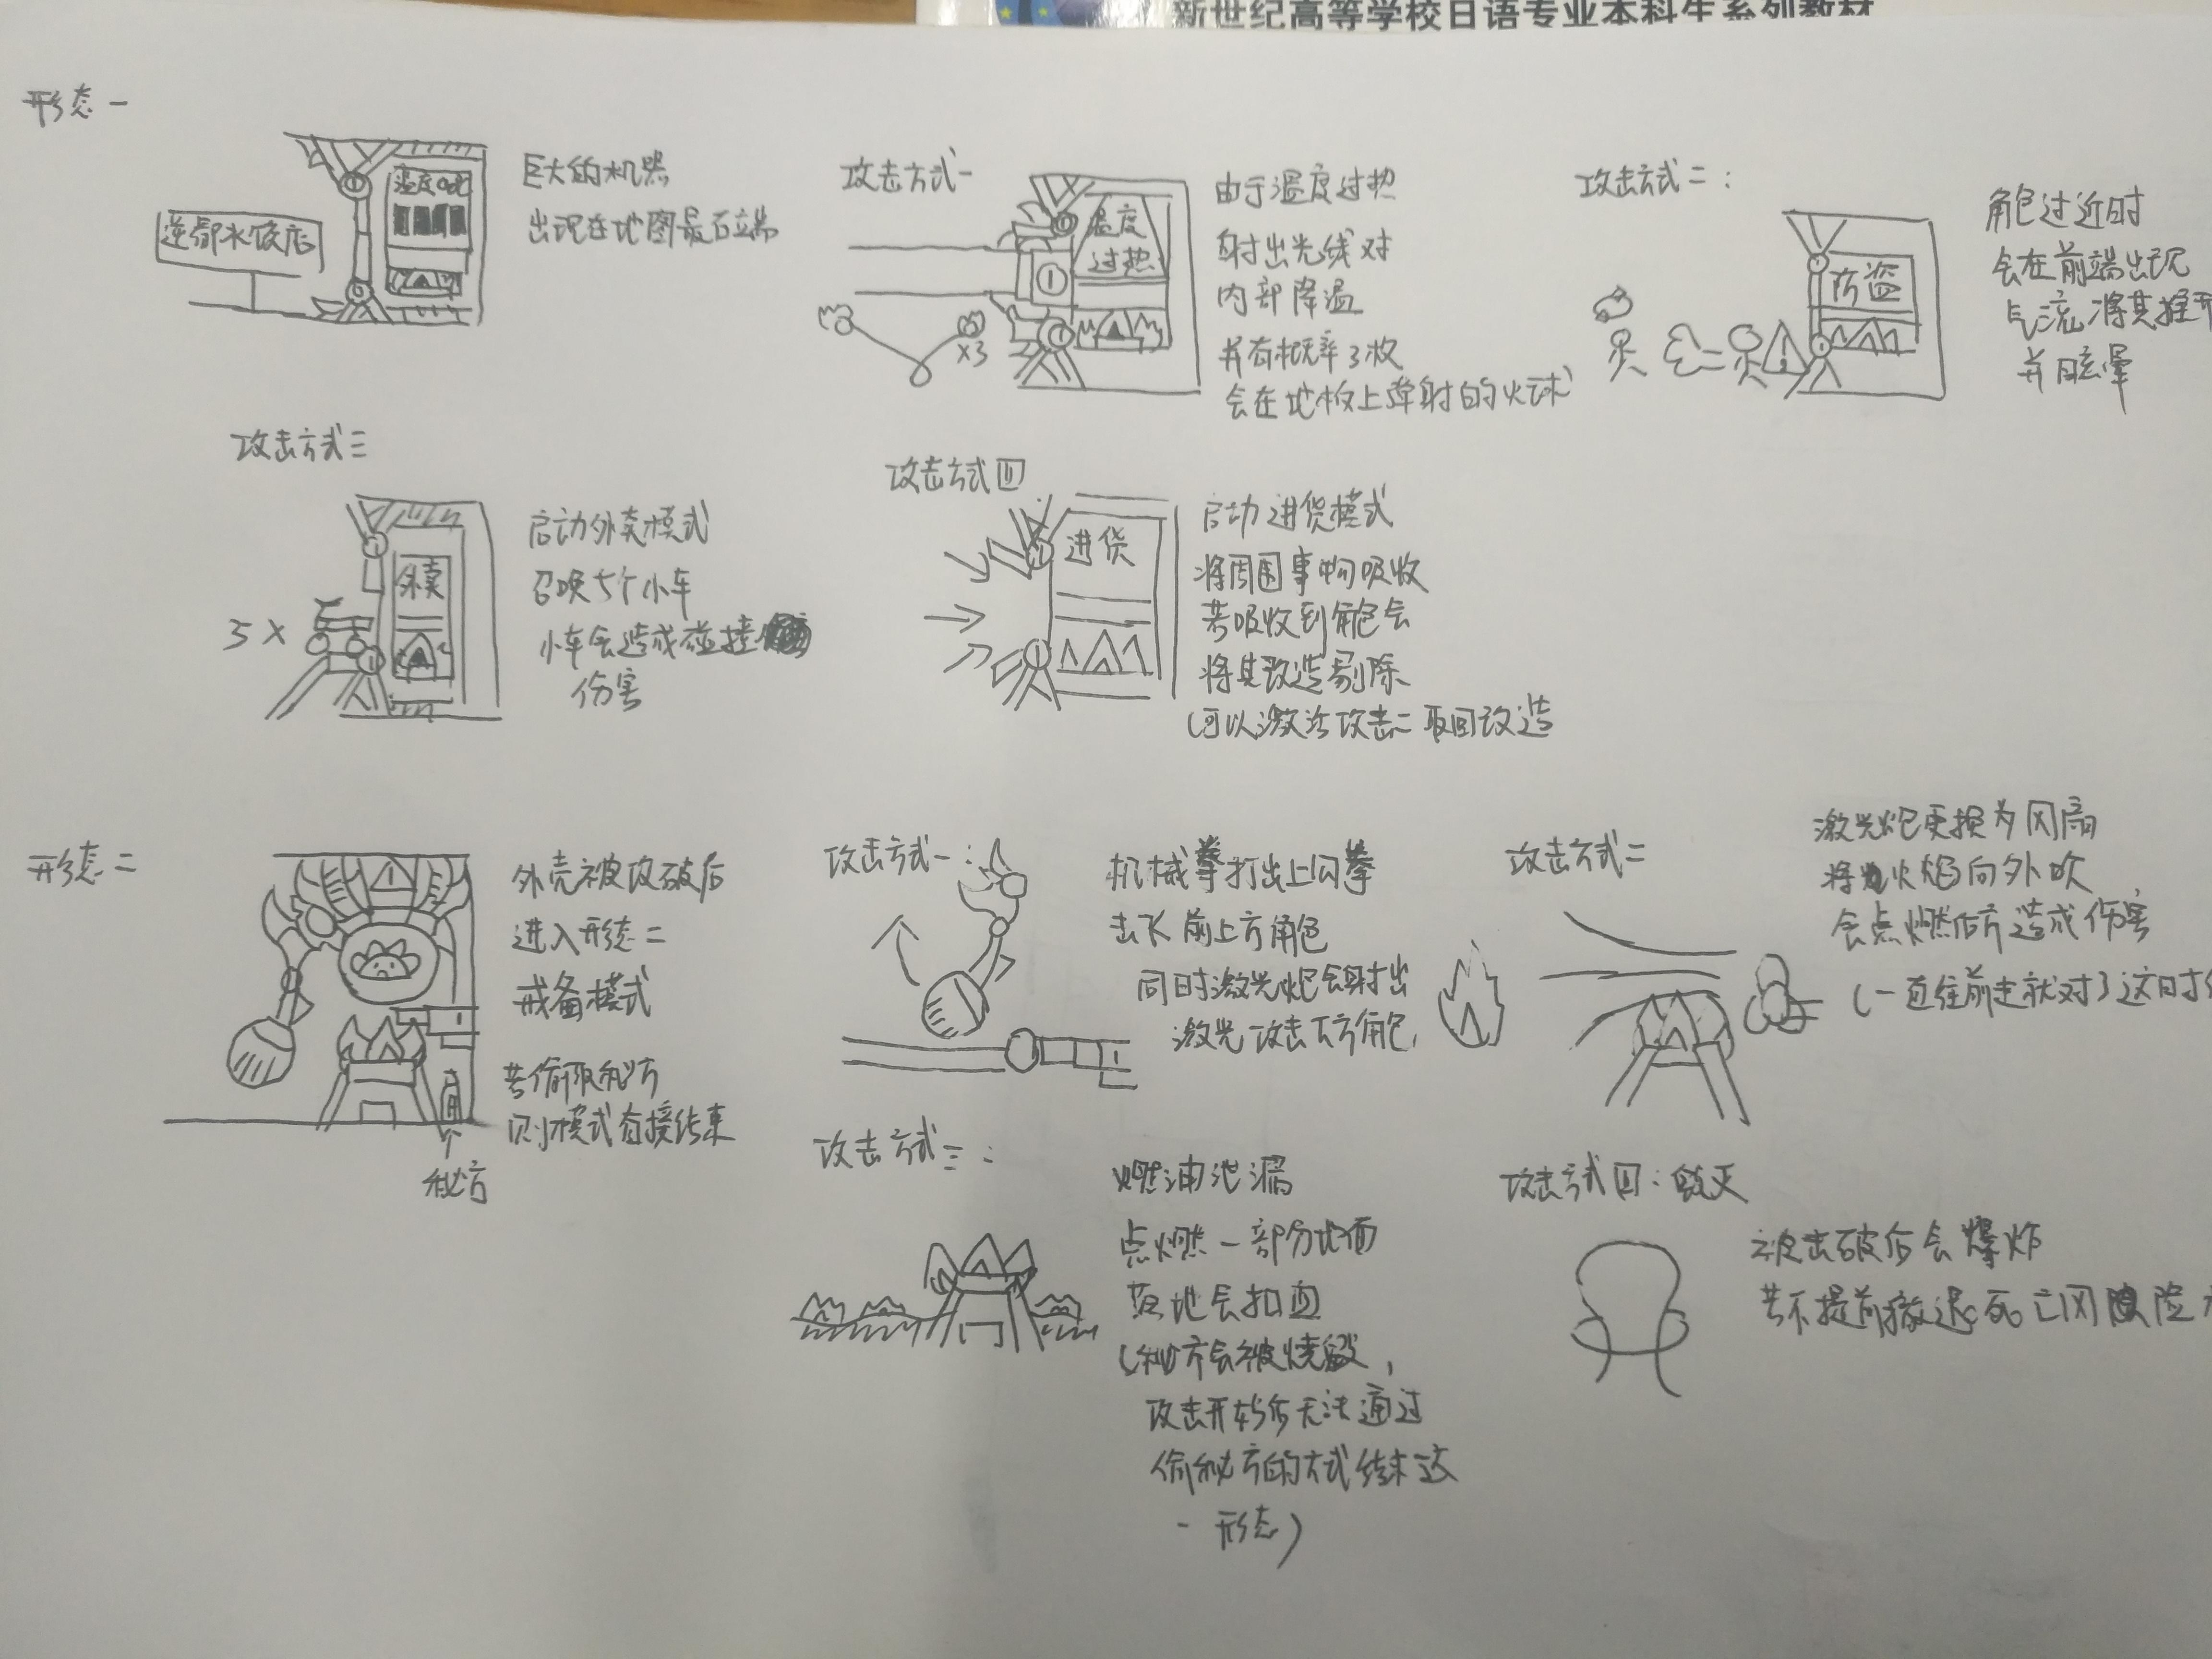 新世纪高等学校日语专业本科生系列教材
形态一
温度
水饺店
巨大的机器
出现在地图最右端
攻击方式一
温度
过热
x3
由于温度过热
射出光线对
内部降温
并有概率3枚
会在地板上弹射的火球
攻击方式二：
防盗
角色过近时
会在前端出现
气流将其推开
并眩晕
攻击方式三
5×
外卖
启动外卖模式
召唤5个小车
小车会造成碰撞
伤害
攻击方式四
进货
启动进货模式
将周围事物吸收
若吸收到角色会
将其改造剔除
(可以激活攻击二取回改造
形态二
外壳被攻破后
进入形态二
戒备模式
若偷取秘方
则模式直接结束
秘方
攻击方式一：
机械拳打出上勾拳
击飞前上方角色
同时激光炮会射出
激光攻击下方角色
攻击方式二
激光炮更换为风扇
将火焰向外吹
会点燃后方造成伤害
(一直往前走就对了这时
攻击方式三：
燃油泄漏
点燃一部分地面
落地会扣血
(秘方会被烧毁，
攻击开始后无法通过
偷秘方的方式结束这
一形态)
攻击方式四：毁灭
被击破后会爆炸
若不提前撤退死亡风险